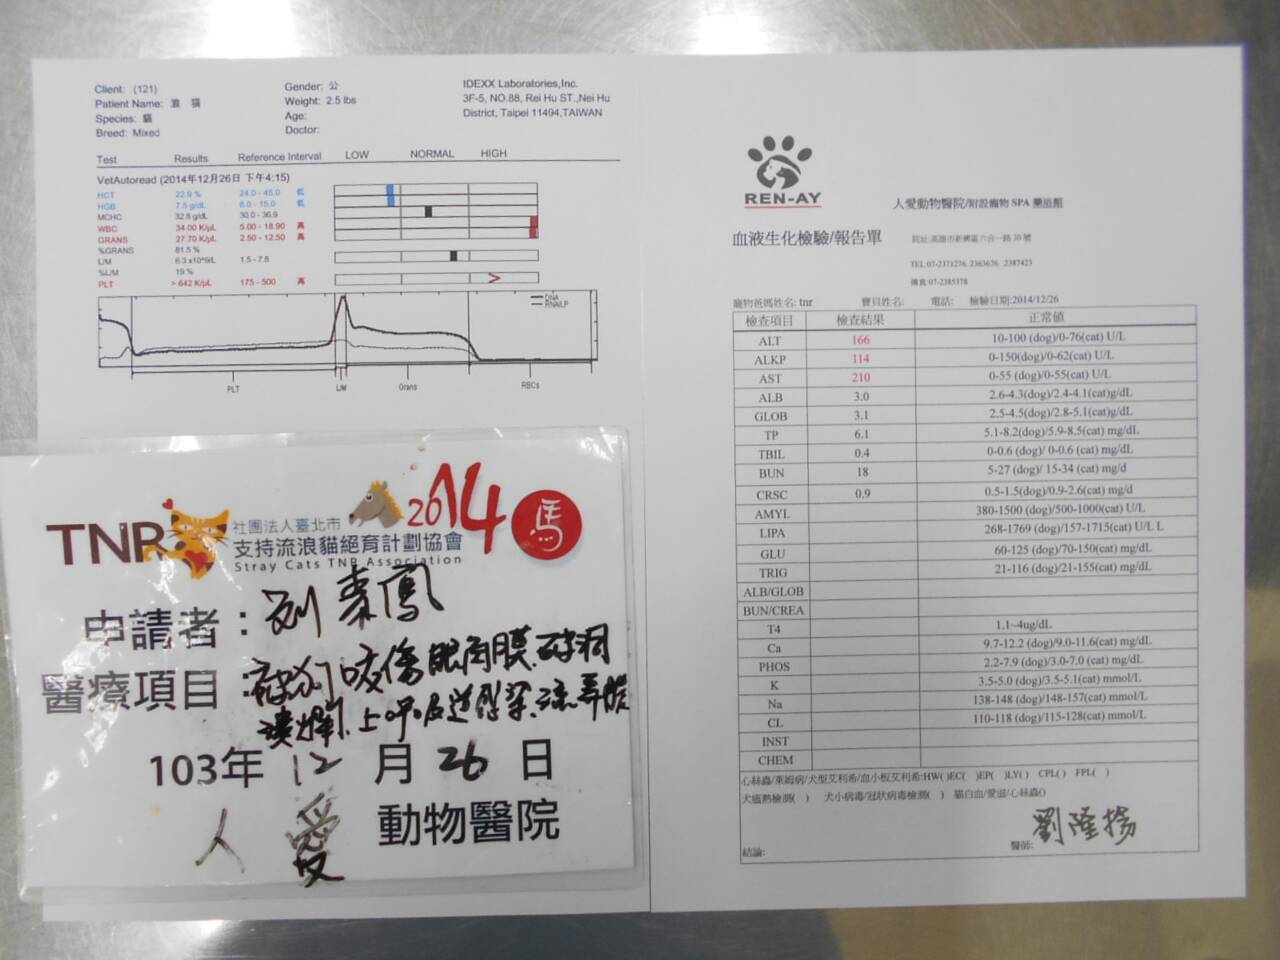 Client: (121)
Patient Name: 浪 貓
Species: 貓
Breed: Mixed
Gender: 公
Weight: 2.5 lbs
Age:
Doctor:
IDEXX Laboratories,Inc.
3F-5, NO.88, Rei Hu ST.,Nei Hu
District, Taipei 11494,TAIWAN
Test Results Reference Interval LOW NORMAL HIGH
VetAutoread (2014年12月26日 下午4:15)
HCT 22.9 % 24.0 - 45.0 低
HGB 7.5 g/dL 8.0 - 15.0 低
MCHC 32.8 g/dL 30.0 - 36.9
WBC 34.00 K/µL 5.00 - 18.90 高
GRANS 27.70 K/µL 2.50 - 12.50 高
%GRANS 81.5 %
L/M 6.3 x10^9/L 1.5 - 7.8
%L/M 19 %
PLT > 642 K/µL 175 - 500 高
DNA
RNA/LP
PLT L/M Grans RBCs
TNR 社團法人臺北市
支持流浪貓絕育計劃協會
Stray Cats TNR Association
2014 馬
申請者：刘素鳳
醫療項目：被狗咬傷眼角膜破洞
潰爛、上呼吸道感染、流鼻膿
103年 12 月 26 日
人 愛 動物醫院
REN-AY
人愛動物醫院/附設寵物 SPA 藥浴館
血液生化檢驗/報告單
院址:高雄市新興區六合一路 30 號
TEL:07-2371276. 2363626. .2387423
傳真:07-2385378
寵物爸媽姓名: tnr 寶貝姓名: 電話: 檢驗日期:2014/12/26
檢查項目 檢查結果 正常值
ALT 166 10-100 (dog)/0-76(cat) U/L
ALKP 114 0-150(dog)/0-62(cat) U/L
AST 210 0-55 (dog)/0-55(cat) U/L
ALB 3.0 2.6-4.3(dog)/2.4-4.1(cat)g/dL
GLOB 3.1 2.5-4.5(dog)/2.8-5.1(cat)g/dL
TP 6.1 5.1-8.2(dog)/5.9-8.5(cat) mg/dL
TBIL 0.4 0-0.6 (dog)/ 0-0.6 (cat) mg/dL
BUN 18 5-27 (dog)/ 15-34 (cat) mg/d
CRSC 0.9 0.5-1.5(dog)/0.9-2.6(cat) mg/d
AMYL 380-1500 (dog)/500-1000(cat) U/L
LIPA 268-1769 (dog)/157-1715(cat) U/L L
GLU 60-125 (dog)/70-150(cat) mg/dL
TRIG 21-116 (dog)/21-155(cat) mg/dL
ALB/GLOB
BUN/CREA
T4 1.1~4ug/dL
Ca 9.7-12.2 (dog)/9.0-11.6(cat) mg/dL
PHOS 2.2-7.9 (dog)/3.0-7.0 (cat) mg/dL
K 3.5-5.0 (dog)/3.5-5.1(cat) mmol/L
Na 138-148 (dog)/148-157(cat) mmol/L
CL 110-118 (dog)/115-128(cat) mmol/L
INST
CHEM
心絲蟲/萊姆病/犬型艾利希/血小板艾利希:HW( )EC( )EP( )LY( ) CPL( ) FPL( )
犬瘟熱檢測( ) 犬小病毒/冠狀病毒檢測( ) 貓白血/愛滋/心絲蟲()
結論: 醫師: 劉隆揚